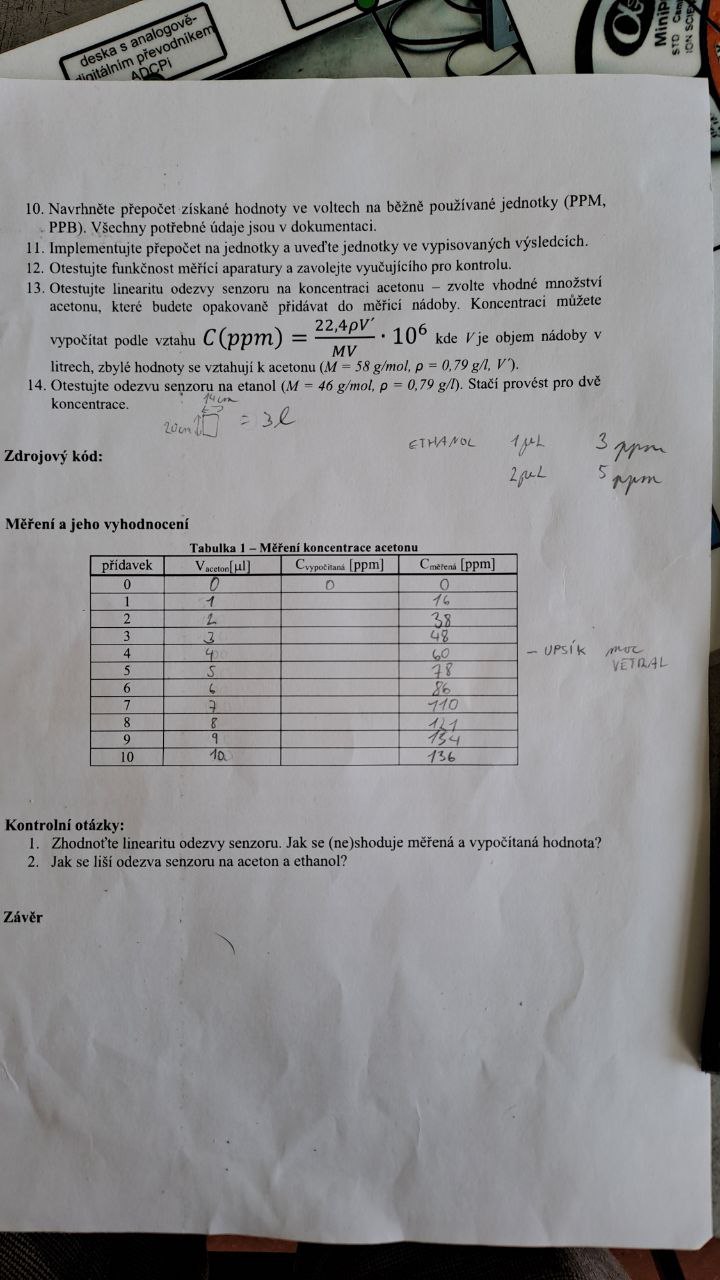 deska s analogově-
digitálním převodníkem
ADCPi
MiniP
STD Cam
ION SCIEN
10. Navrhněte přepočet získané hodnoty ve voltech na běžně používané jednotky (PPM,
PPB). Všechny potřebné údaje jsou v dokumentaci.
11. Implementujte přepočet na jednotky a uveďte jednotky ve vypisovaných výsledcích.
12. Otestujte funkčnost měřící aparatury a zavolejte vyučujícího pro kontrolu.
13. Otestujte linearitu odezvy senzoru na koncentraci acetonu – zvolte vhodné množství
acetonu, které budete opakovaně přidávat do měřicí nádoby. Koncentraci můžete
vypočítat podle vztahu C(ppm) = 22,4ρV´/MV · 10⁶ kde V je objem nádoby v
litrech, zbylé hodnoty se vztahují k acetonu (M = 58 g/mol, ρ = 0,79 g/l, V´).
14. Otestujte odezvu senzoru na etanol (M = 46 g/mol, ρ = 0,79 g/l). Stačí provést pro dvě
koncentrace.
14cm
20cm = 3l
ETHANOL 1µL 3 ppm
2µL 5 ppm
Zdrojový kód:
Měření a jeho vyhodnocení
Tabulka 1 – Měření koncentrace acetonu
přídavek Vaceton[µl] Cvypočítaná [ppm] Cměřená [ppm]
0 0 0 0
1 1 16
2 2 38
3 3 48
4 4 60 – UPSÍK moc
VĚTRAL
5 5 78
6 6 86
7 7 110
8 8 121
9 9 134
10 10 136
Kontrolní otázky:
1. Zhodnoťte linearitu odezvy senzoru. Jak se (ne)shoduje měřená a vypočítaná hodnota?
2. Jak se liší odezva senzoru na aceton a ethanol?
Závěr